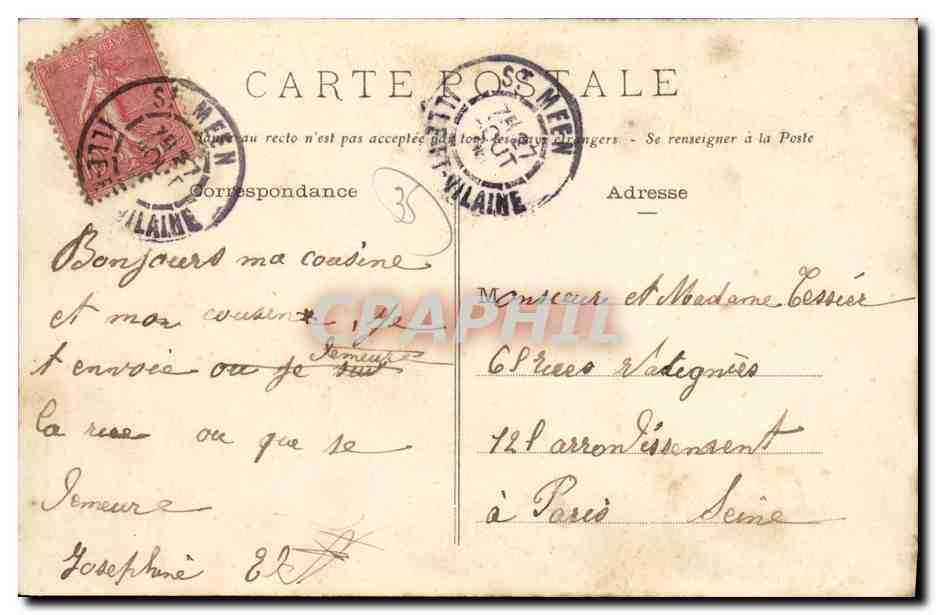 CARTE POSTALE
au recto n'est pas acceptée par tous les pays étrangers. - Se renseigner à la Poste
Correspondance
35
Adresse
ST MEEN
ILLE-ET-VILAINE
ST MEEN
ILLE-ET-VILAINE
Bonjours ma cousine
et mon cousin, je
t envoie ou je suis
demeure
la rue ou que se
demeure
Josephine
Monsieur et Madame Tessier
68 rues Vatignies
12e arrondissement
à Paris Seine
CPAPHIL